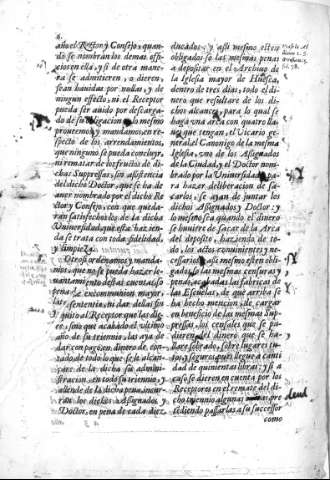 año el Rector y Consejo, quan-
do se nombrán los demas offi-
zios en ella, y si de otra mane-
ra se admitieren, a dieren,
sean hauidas por nullas, y de
ningun effecto, ni el Receptor
pueda ser auido por descarga-
do de su obligacion lo mismo
proueemos y mandamos, en res-
pecto de los arrendamientos,
que ninguno se pueda concluyr,
ni rematar de los frutos de di-
chas Suppressas, sin assistencia
del dicho Doctor, que se ha de
auer nombrado por el dicho Re-
ctor y Consejo, con que queda-
rán satisfechos los de la dicha
Vniuersidad que esta hazien-
da se trata con toda fidelidad,
y limpieza.
Otrosi ordenamos y manda-
mos, que no se pueda hazer le-
uantamiento destas cuentas, so
pena de excommunion mayor,
latę sententię, ni dar dellas fin
y quito al Receptor que las die-
re, sino que acabado el vltimo
año de su trienio, las aya de
dar con pago en dinero de con-
tado de todo lo que se le alcan-
zare de la dicha su admini-
stracion, en todo su triennio, y
allende de la dicha pena, incur-
ran los dichos Assignados y
Doctor, en pena de cada diez
ducados, y assi mismo esten
obligados so las mesmas penas
a depositar en el Archiuo de
la Iglesia mayor de Huesca,
dentro de tres dias, todo el di-
nero que resultare de los di-
chos alcances, para lo qual se
haga vna arca con quatro lla-
ues que tengan, el Vicario ge-
neral, el Canonigo de la mesma
Iglesia, vno de los Assignados
de la Ciudad, y el Doctor nom-
brado por la Vniuersidad, pa-
ra hazer deliberacion de Sa-
larios, se ayan de juntar los
dichos Assignados y Doctor, y
lo mesmo sea quando el dinero
se huuiere de sacar de la Arca
del deposito, haziendo de to-
do, los actos conuinientes y ne-
cessarios, y assi mesmo esten obli-
gados, so las mesmas censuras y
penas, acabadas las fabricas de
las Escuelas, de que arriba se
ha hecho mencion, de cargar
en beneficio de las mesmas Su-
pressas, los censales que se pu-
dieren del dinero que se ha-
llare sobrado, sobre lugares tu-
tos, y seguros, pues llegue a canti-
dad de quinientas libras: y si a
caso se dieren en cuenta por los
Receptores en el remate del di-
cho triennio algunas
se diendo passarlas a su successor
como